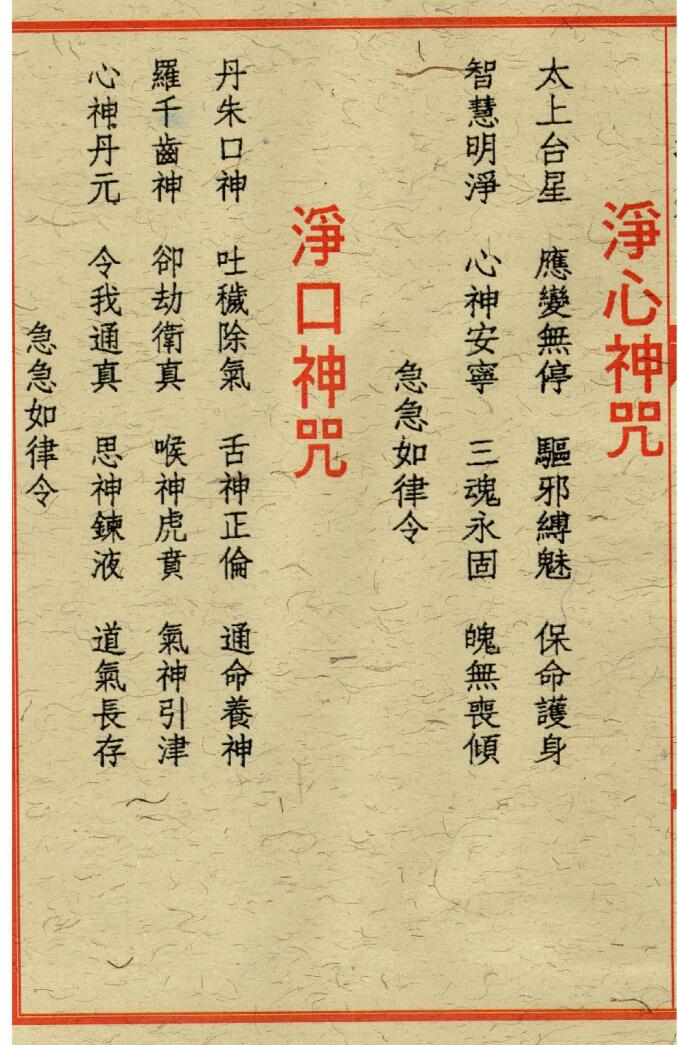 淨心神咒
太上台星 應變無停 驅邪縛魅 保命護身
智慧明淨 心神安寧 三魂永固 魄無喪傾
急急如律令
淨口神咒
丹朱口神 吐穢除氣 舌神正倫 通命養神
羅千齒神 卻劫衛真 喉神虎賁 氣神引津
心神丹元 令我通真 思神鍊液 道氣長存
急急如律令